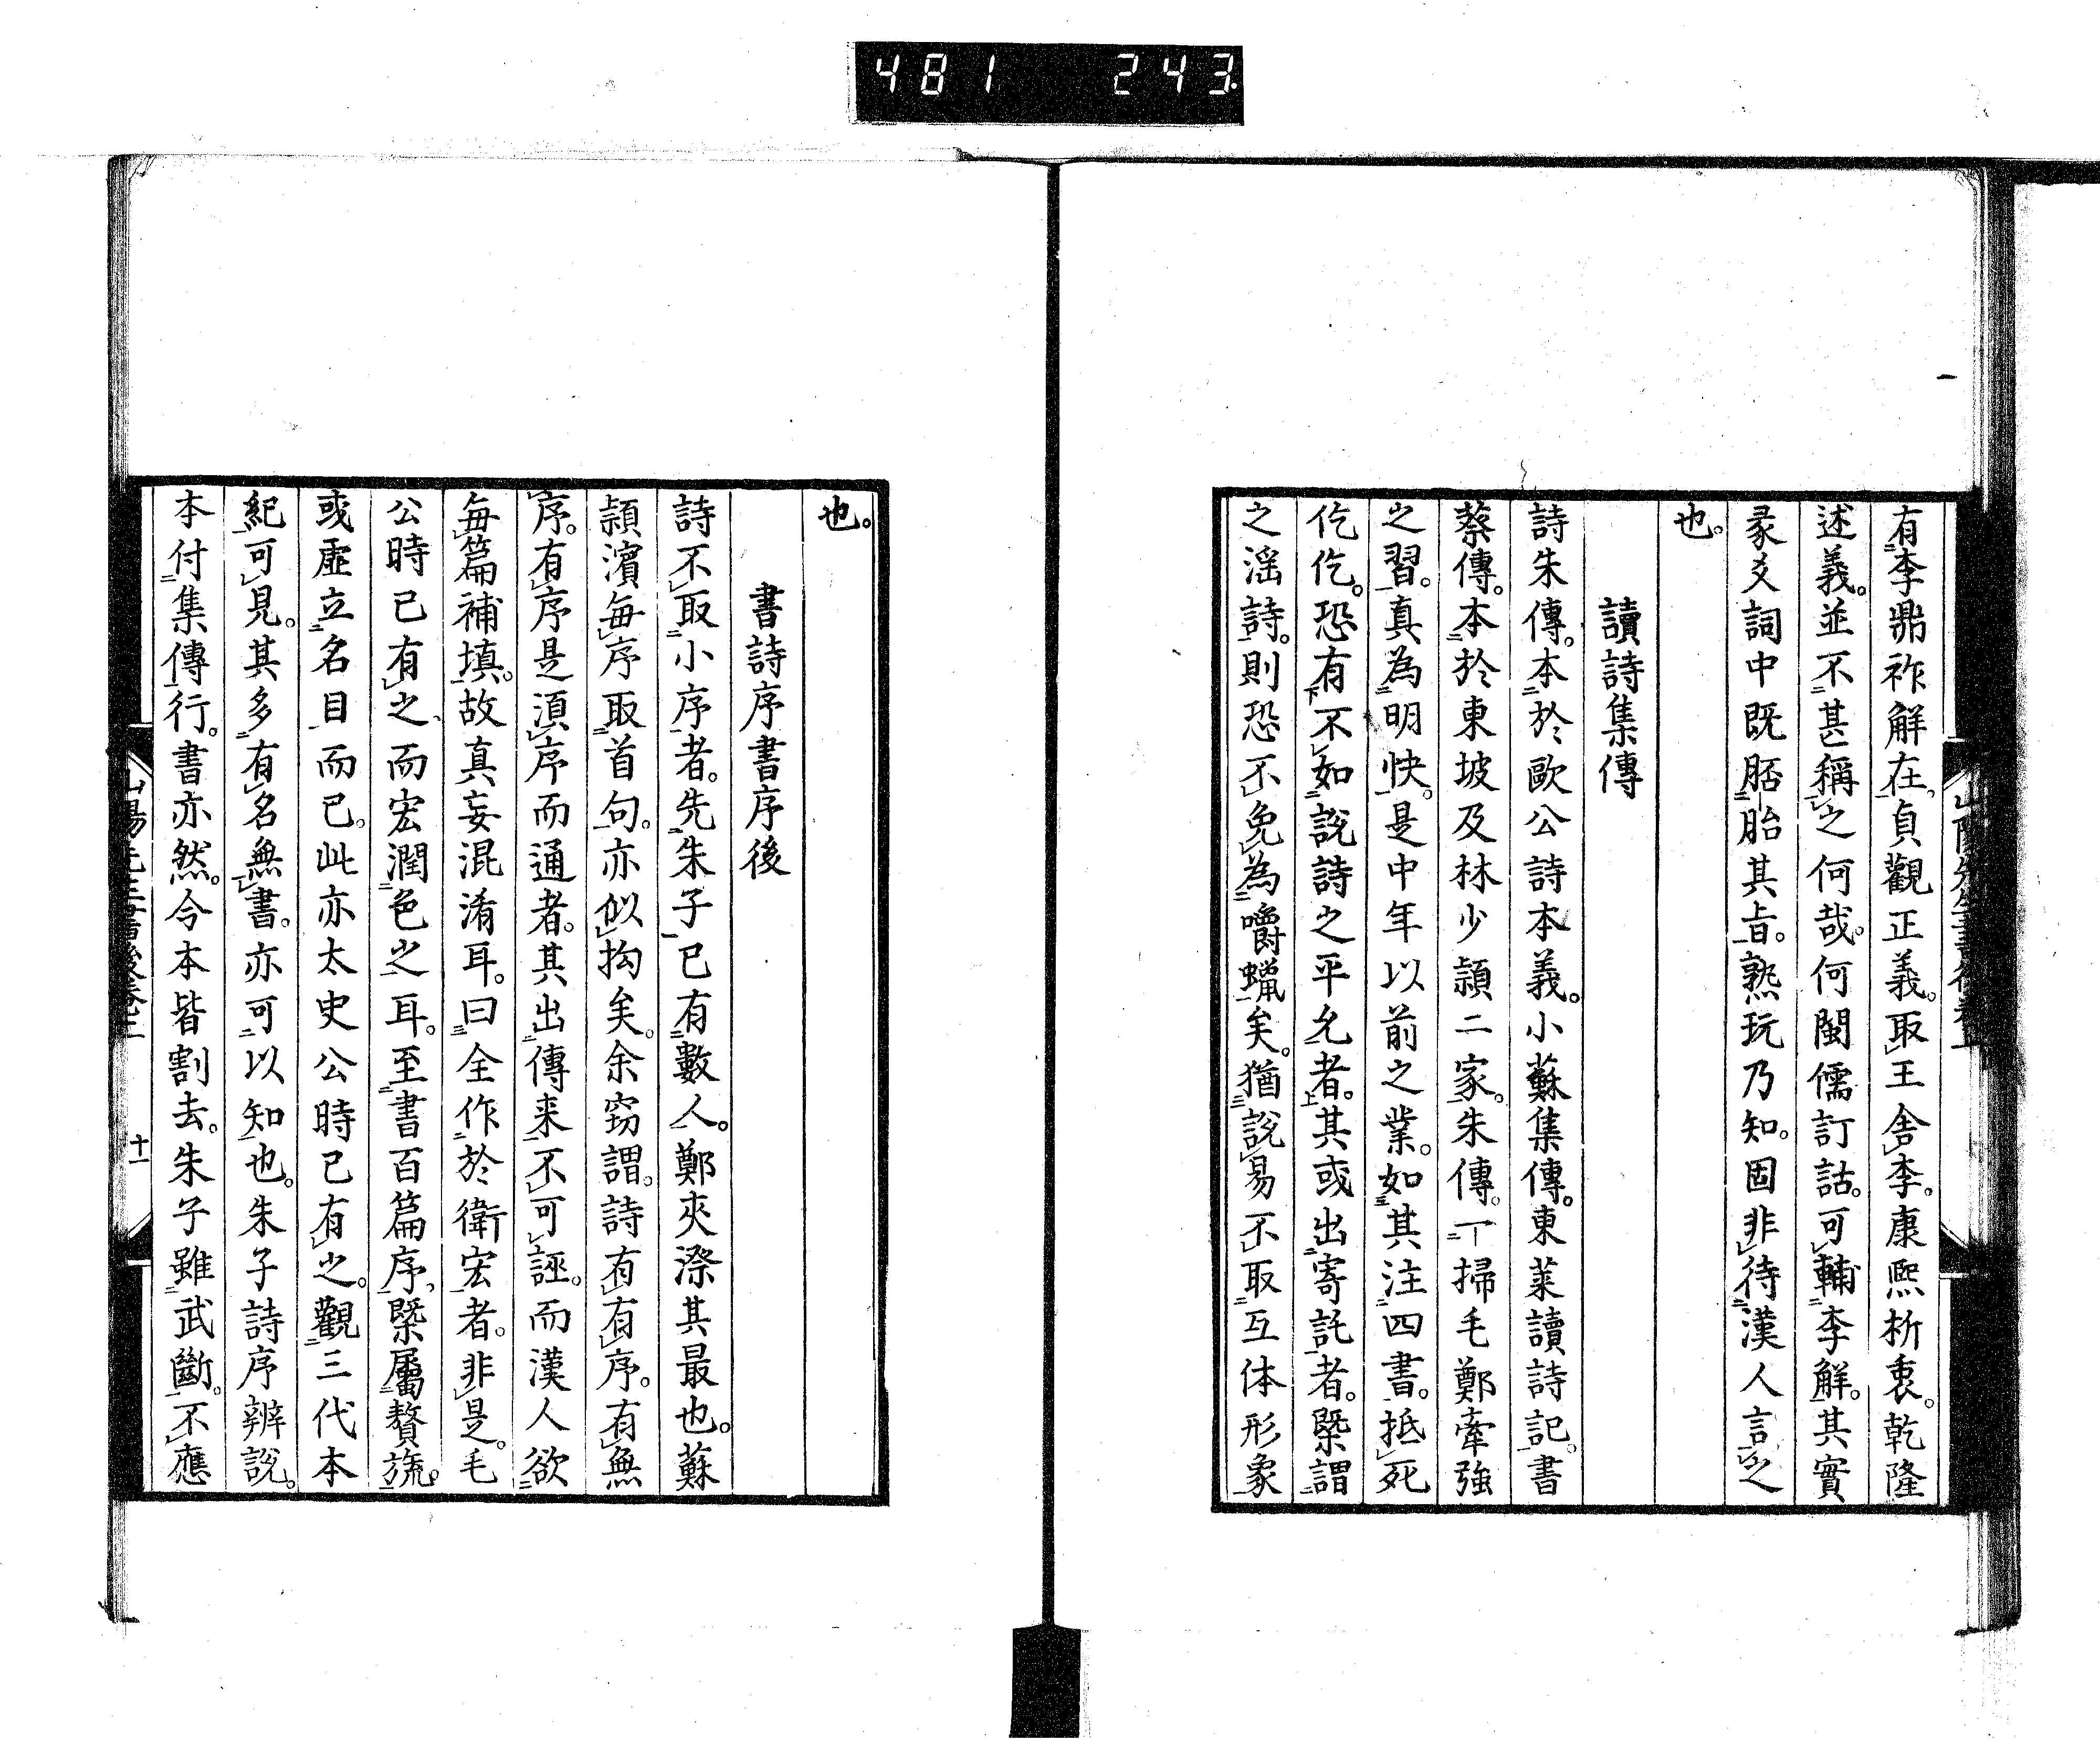 481 243
有李鼎祚解在。貞觀正義。取王舍李。康熙折衷。乾隆
述義。並不甚稱之何哉。何閩儒訂詁。可輔李解。其實
彖爻詞中既胚胎其旨。熟玩乃知。固非待漢人言之
也。
讀詩集傳
詩朱傳。本於歐公詩本義。小蘇集傳。東萊讀詩記。書
蔡傳。本於東坡及林少穎二家。朱傳。一掃毛鄭牽強
之習。真為明快。是中年以前之業。如其注四書。抵死
仡仡。恐有不如說詩之平允者。其或出寄託者。槩謂
之淫詩。則恐不免為嚼蠟矣。猶說易不取互体形象
也。
書詩序書序後
詩不取小序者。先朱子已有數人。鄭夾漈其最也。蘇
潁濱每序取首句。亦似拘矣。余窃謂。詩有有序。有無
序。有序是湏序而通者。其出傳来不可誣。而漢人欲
每篇補填。故真妄混淆耳。曰全作於衛宏者。非是。毛
公時已有之、而宏潤色之耳。至書百篇序、槩屬贅旒。
或虛立名目而已。此亦太史公時已有之。觀三代本
紀可見。其多有名無書。亦可以知也。朱子詩序辨說。
本付集傳行。書亦然。今本皆割去。朱子雖武斷。不應
十一